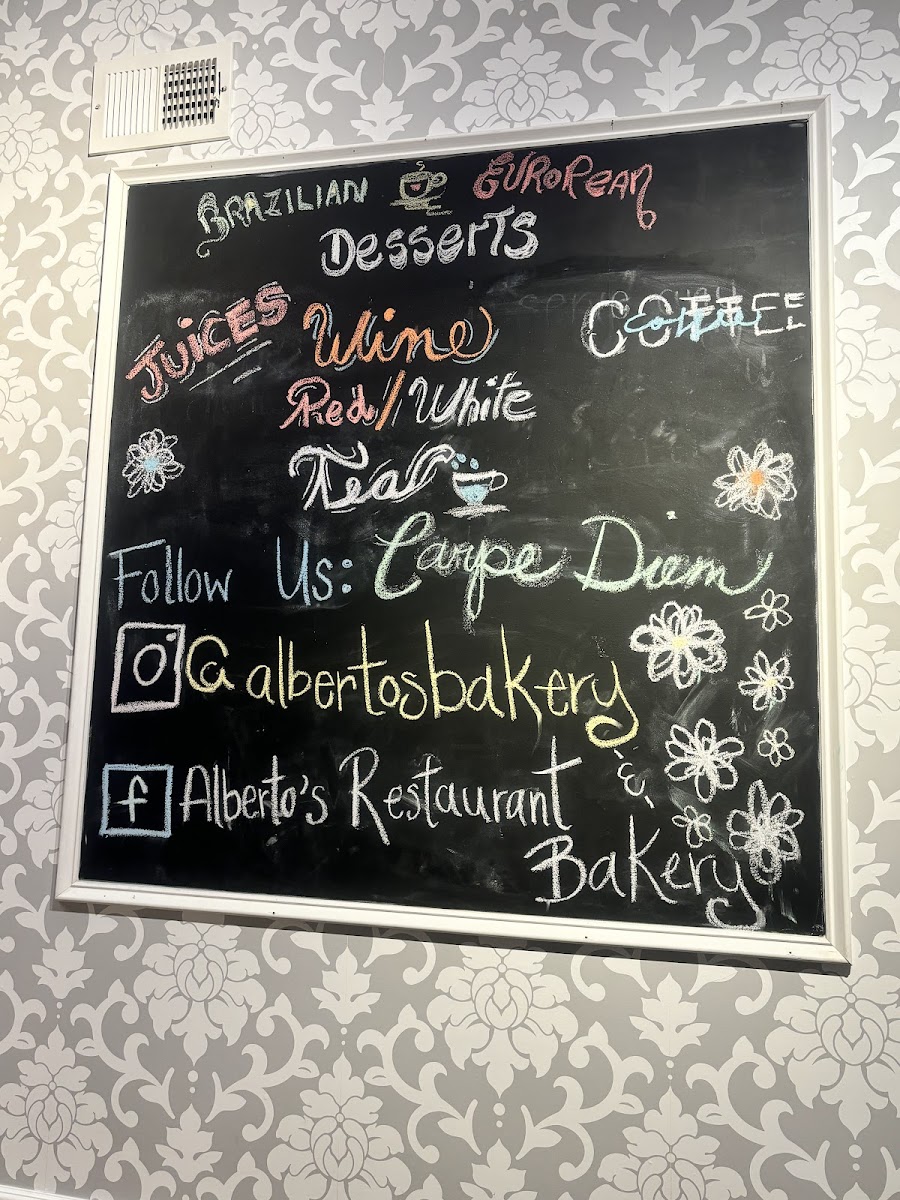 BRAZILIAN EUROPEAN
Desserts
JUICES Wine COFFEE
Coffee
Red/White
Tea
Follow Us: Carpe Diem
@albertosbakery
&
f Alberto's Restaurant
Bakery